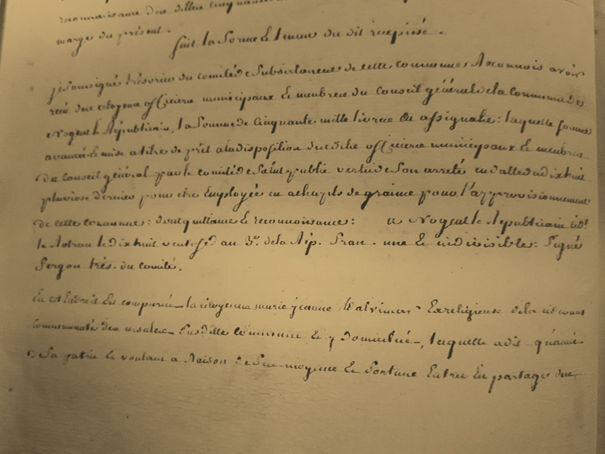 reconnaissance des dittes cinquante
marge du présent.
suit la forme & teneur du dit recepissé.
je soussigné trésorier du comité de Subsistances de cette commune, Reconnais avoir
recu des citoyens officiers municipaux & membres du Conseil générale de la commune de
Nogent le Républicain, la Somme de Cinquante mille livres en assignats: laquelle somme
avancée & mise a titre de prêt a la disposition des dits officiers municipaux & membres
du Conseil général par le comité de Salut public vertu de Son arreté en datte du dix huit
pluviose dernier pour etre Employée en achapts de graine pour l'approvisionnement
de cette commune: dont quittance & reconnoissance: a Nogent le Républicain
le Rotrou le dix huit ventose an 3e. de la Rép. fran. une & indivisible: Signé
Sergon trés. du comité.
En cet Endroit Est comparue la citoyenne marie jeanne Exreligieuse de la cidevant
communauté des dite commune & y domiciliée, laquelle a dit
Sa patrie & voulant a Raison de Ses moyens & fortune Entrer En partage des